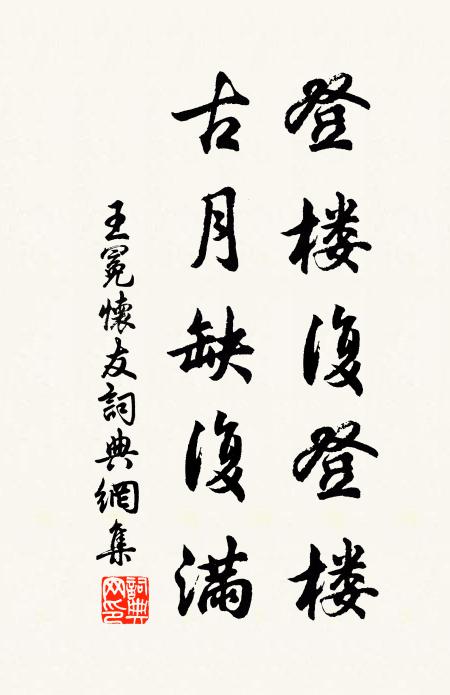 登楼復登楼
古月缺復滿
王冕懷友詞典網集
詞典网印